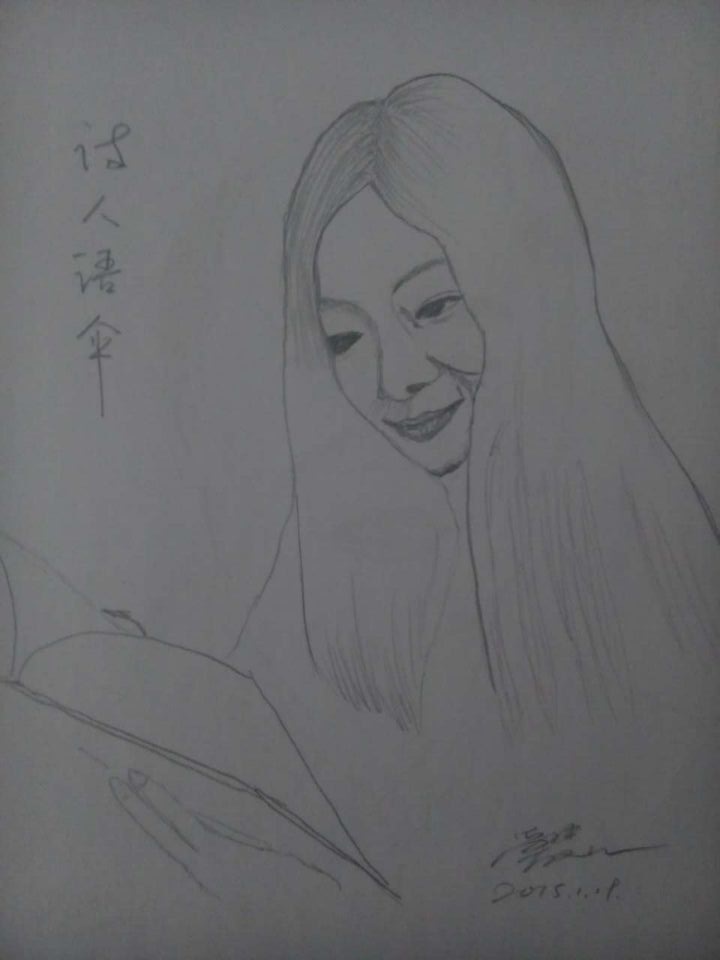 诗人语伞
2015.1.18.